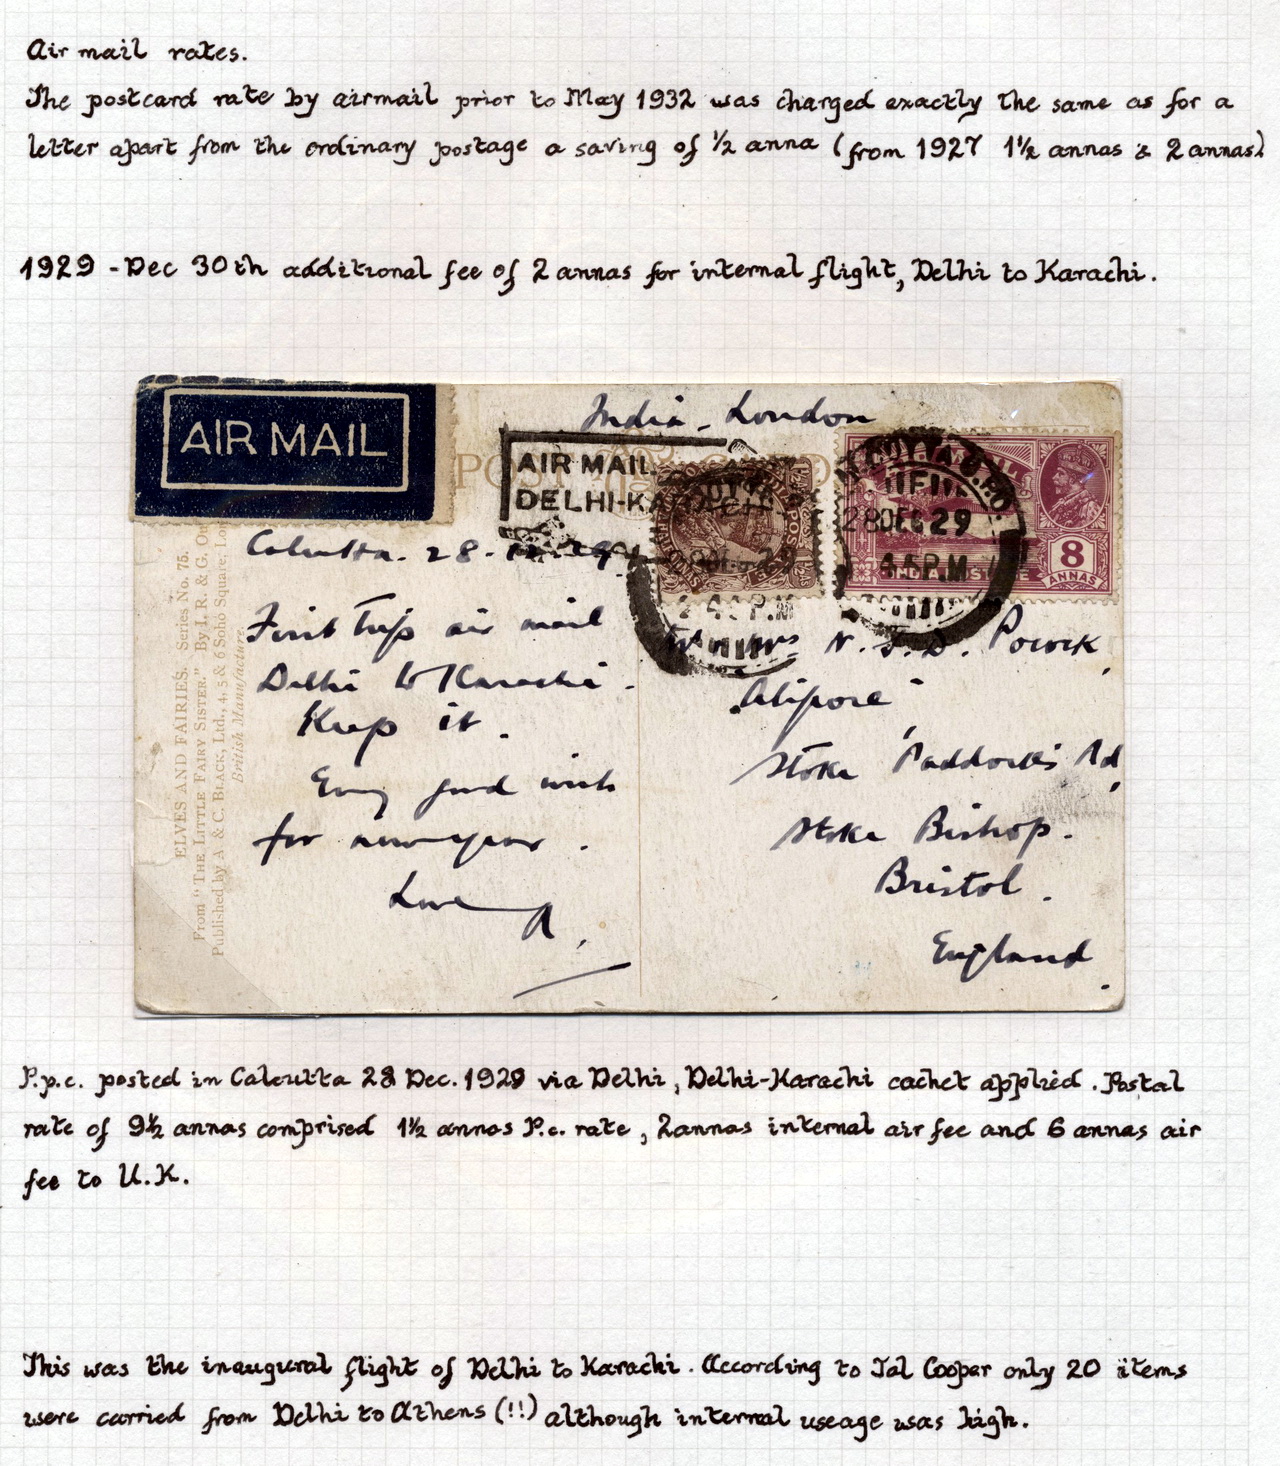 Air mail rates.
The postcard rate by airmail prior to May 1932 was charged exactly the same as for a
letter apart from the ordinary postage a saving of ½ anna (from 1927 1½ annas & 2 annas)
1929 - Dec 30th additional fee of 2 annas for internal flight, Delhi to Karachi.
AIR MAIL
India - London
POST
AIR MAIL
DELHI-KARACHI
CALCUTTA G.P.O.
28 DEC 29
4.45 P.M
8
ANNAS
INDIA POSTAGE
Calcutta. 28. 12. 29
First trip air mail
Delhi to Karachi.
Keep it.
Every good wish
for new year.
Love
A.
N. S. D. Pocock
Alipore
Stoke Paddocks Rd,
Stoke Bishop.
Bristol.
England.
ELVES AND FAIRIES. Series No. 75.
From "THE LITTLE FAIRY SISTER." By I. R. & G. Ou
Published by A & C. BLACK, Ltd., 4, 5 & 6 Soho Square, Lon
British Manufacture
P.p.c. posted in Calcutta 28 Dec. 1929 via Delhi, Delhi-Karachi cachet applied. Postal
rate of 9½ annas comprised 1½ annas P.c. rate, 2annas internal air fee and 6 annas air
fee to U.K.
This was the inaugural flight of Delhi to Karachi. According to Jal Cooper only 20 items
were carried from Delhi to Athens (!!) although internal useage was high.